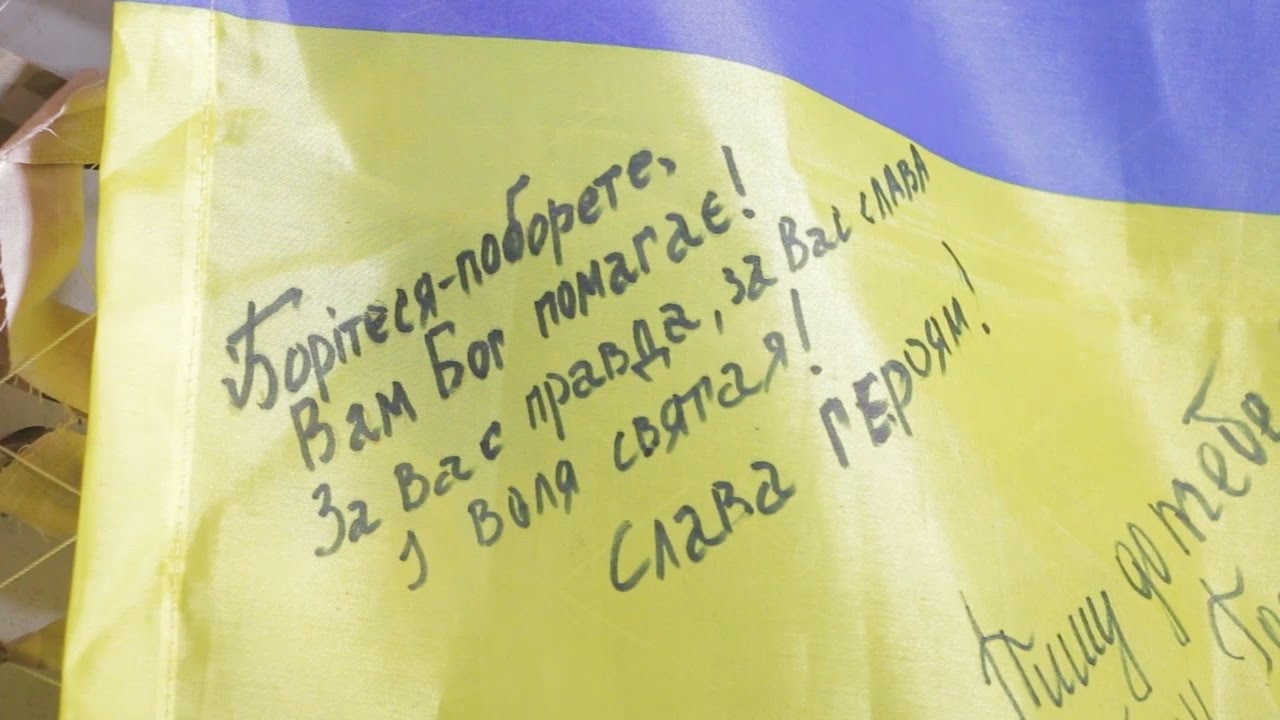 Борітеся-поборете,
Вам Бог помагає!
За Вас правда, за Вас СЛАВА
І воля святая!
СЛАВА ГЕРОЯМ!
Пишу до тебе